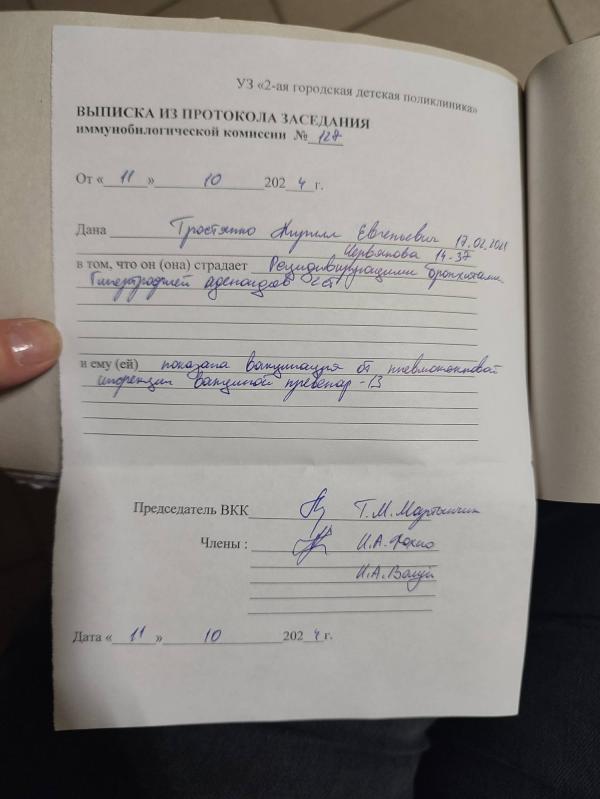 УЗ «2-ая городская детская поликлиника»
ВЫПИСКА ИЗ ПРОТОКОЛА ЗАСЕДАНИЯ
иммунобилогической комиссии № 128
От « 11 » 10 202 4 г.
Дана Кирилл Евгеньевич 17.02.2021
14-37
в том, что он (она) страдает Рецидивирующими бронхитами
Гипертрофией аденоидов 2 ст
и ему (ей) показана вакцинация от пневмококковой
инфекции вакциной превенар-13
Председатель ВКК Т.М.
Члены : И.А.
И.А.
Дата « 11 » 10 202 4 г.